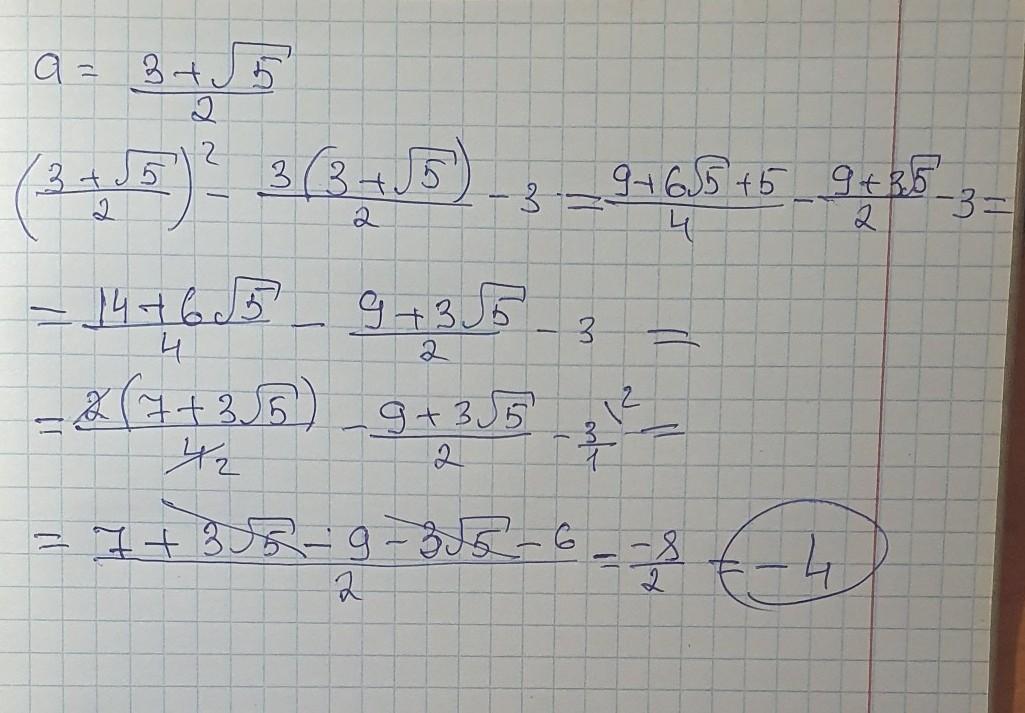 a = (3 + √5)/2
((3 + √5)/2)² - 3(3 + √5)/2 - 3 = (9 + 6√5 + 5)/4 - (9 + 3√5)/2 - 3 =
= (14 + 6√5)/4 - (9 + 3√5)/2 - 3 =
= 2(7 + 3√5)/4 2 - (9 + 3√5)/2 - 3/1 \2 =
= (7 + 3√5 - 9 - 3√5 - 6)/2 = -8/2 = -4